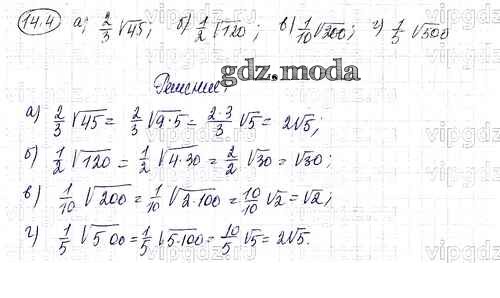 14.4 а; 2/3 √45; б) 1/2 √120; в) 1/10 √200; г) 1/5 √500
Решение;
gdz.moda
а) 2/3 √45 = 2/3 √9·5 = 2·3/3 √5 = 2√5;
б) 1/2 √120 = 1/2 √4·30 = 2/2 √30 = √30;
в) 1/10 √200 = 1/10 √2·100 = 10/10 √2 = √2;
г) 1/5 √500 = 1/5 √5·100 = 10/5 √5 = 2√5.